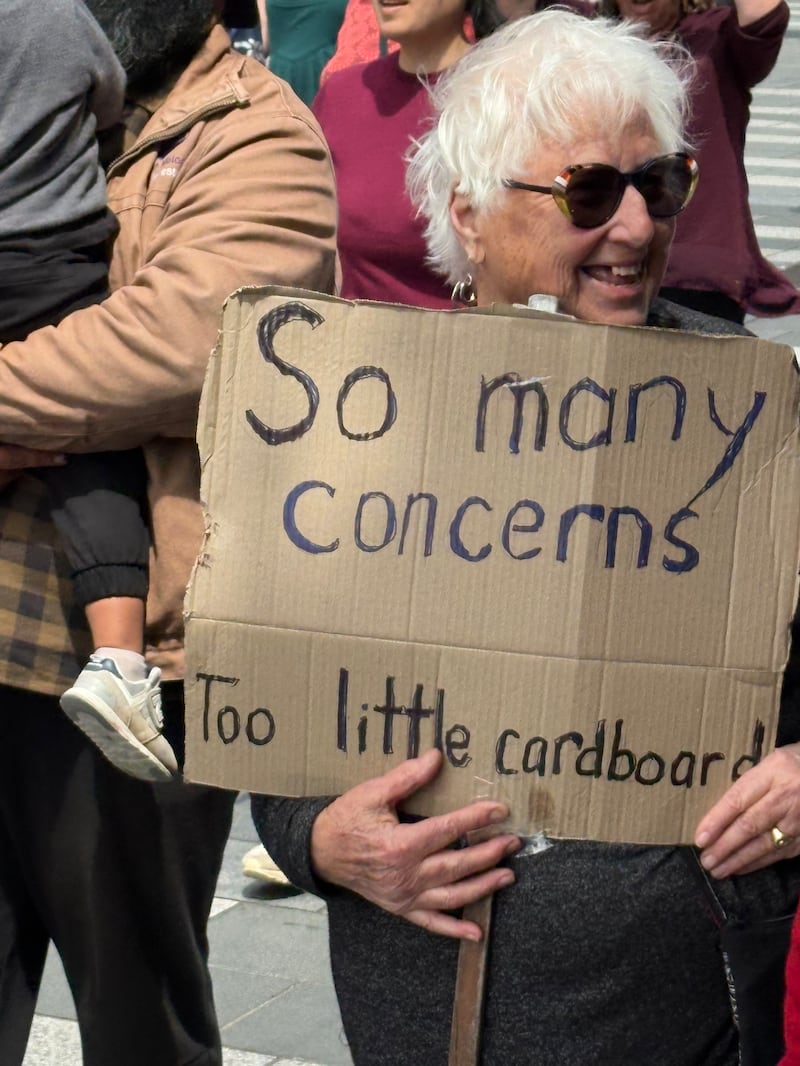 So many
concerns
Too little cardboard